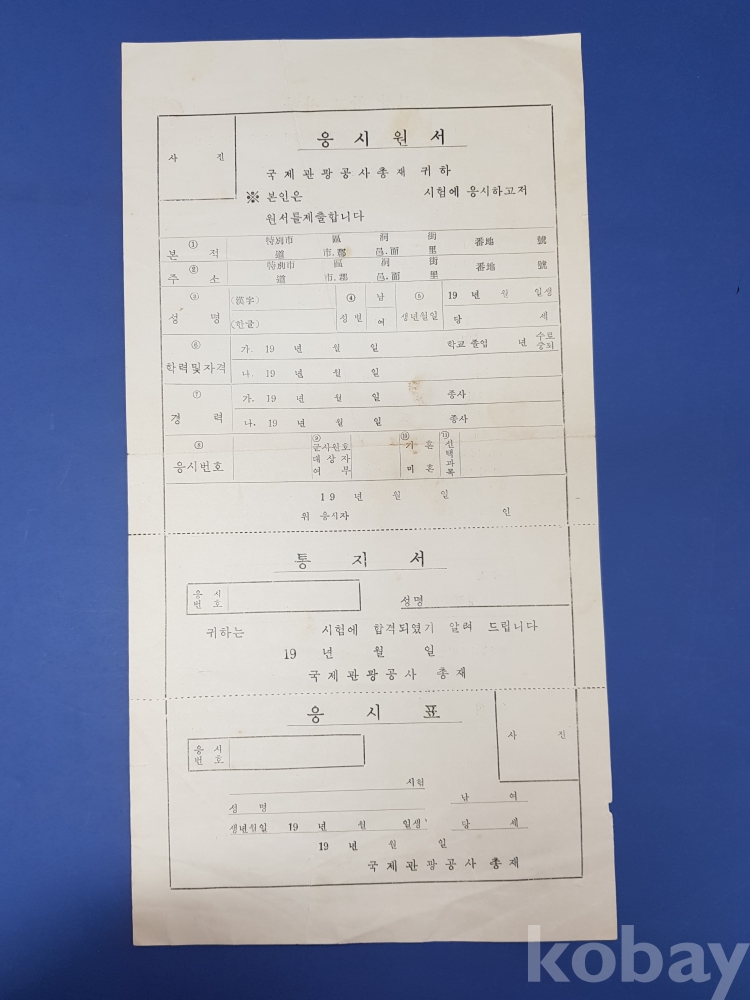 응시원서
사 진
국제관광공사총재 귀하
※ 본인은 시험에 응시하고저
원서를제출합니다
① 본 적 特別市 道 區 市.郡 洞 邑.面 街 里 番地 號
② 주 소 特別市 道 區 市.郡 洞 邑.面 街 里 番地 號
③ 성 명 (漢字) (한글) ④ 성별 남 여 ⑤ 생년월일 19 년 월 일생 당 세
⑥ 학력및자격 가. 19 년 월 일 학교 졸업 년 수료 중퇴
나. 19 년 월 일
⑦ 경 력 가. 19 년 월 일 종사
나. 19 년 월 일 종사
⑧ 응시번호 ⑨ 군사원호 대상자 여 부 ⑩ 기 혼 미 혼 ⑪ 선택과목
19 년 월 일
위 응시자 인
통지서
응시 번호 성명
귀하는 시험에 합격되였기 알려 드립니다
19 년 월 일
국제관광공사 총재
응시표
사 진
응시 번호
시험
성 명 남 여
생년월일 19 년 월 일생 당 세
19 년 월 일
국제관광공사 총재
kobay